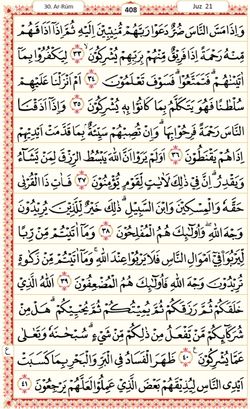 30. Ar-Rūm
408
Juz 21
وَإِذَا مَسَّ ٱلنَّاسَ ضُرٌّ دَعَوْا۟ رَبَّهُم مُّنِيبِينَ إِلَيْهِ ثُمَّ إِذَآ أَذَاقَهُم
مِّنْهُ رَحْمَةً إِذَا فَرِيقٌ مِّنْهُم بِرَبِّهِمْ يُشْرِكُونَ ٣٣ لِيَكْفُرُوا۟ بِمَآ
ءَاتَيْنَٰهُمْ ۚ فَتَمَتَّعُوا۟ فَسَوْفَ تَعْلَمُونَ ٣٤ أَمْ أَنزَلْنَا عَلَيْهِمْ
سُلْطَٰنًا فَهُوَ يَتَكَلَّمُ بِمَا كَانُوا۟ بِهِۦ يُشْرِكُونَ ٣٥ وَإِذَآ أَذَقْنَا
ٱلنَّاسَ رَحْمَةً فَرِحُوا۟ بِهَا ۖ وَإِن تُصِبْهُمْ سَيِّئَةٌۢ بِمَا قَدَّمَتْ أَيْدِيهِمْ
إِذَا هُمْ يَقْنَطُونَ ٣٦ أَوَلَمْ يَرَوْا۟ أَنَّ ٱللَّهَ يَبْسُطُ ٱلرِّزْقَ لِمَن يَشَآءُ
وَيَقْدِرُ ۚ إِنَّ فِى ذَٰلِكَ لَءَايَٰتٍ لِّقَوْمٍ يُؤْمِنُونَ ٣٧ فَـَٔاتِ ذَا ٱلْقُرْبَىٰ
حَقَّهُۥ وَٱلْمِسْكِينَ وَٱبْنَ ٱلسَّبِيلِ ۚ ذَٰلِكَ خَيْرٌ لِّلَّذِينَ يُرِيدُونَ
وَجْهَ ٱللَّهِ ۖ وَأُو۟لَٰٓئِكَ هُمُ ٱلْمُفْلِحُونَ ٣٨ وَمَآ ءَاتَيْتُم مِّن رِّبًا
لِّيَرْبُوَا۟ فِىٓ أَمْوَٰلِ ٱلنَّاسِ فَلَا يَرْبُوا۟ عِندَ ٱللَّهِ ۖ وَمَآ ءَاتَيْتُم مِّن زَكَوٰةٍ
تُرِيدُونَ وَجْهَ ٱللَّهِ فَأُو۟لَٰٓئِكَ هُمُ ٱلْمُضْعِفُونَ ٣٩ ٱللَّهُ ٱلَّذِى
خَلَقَكُمْ ثُمَّ رَزَقَكُمْ ثُمَّ يُمِيتُكُمْ ثُمَّ يُحْيِيكُمْ ۖ هَلْ مِن
شُرَكَآئِكُم مَّن يَفْعَلُ مِن ذَٰلِكُم مِّن شَىْءٍ ۚ سُبْحَٰنَهُۥ وَتَعَٰلَىٰ
عَمَّا يُشْرِكُونَ ٤٠ ظَهَرَ ٱلْفَسَادُ فِى ٱلْبَرِّ وَٱلْبَحْرِ بِمَا كَسَبَتْ
أَيْدِى ٱلنَّاسِ لِيُذِيقَهُم بَعْضَ ٱلَّذِى عَمِلُوا۟ لَعَلَّهُمْ يَرْجِعُونَ ٤١
ع